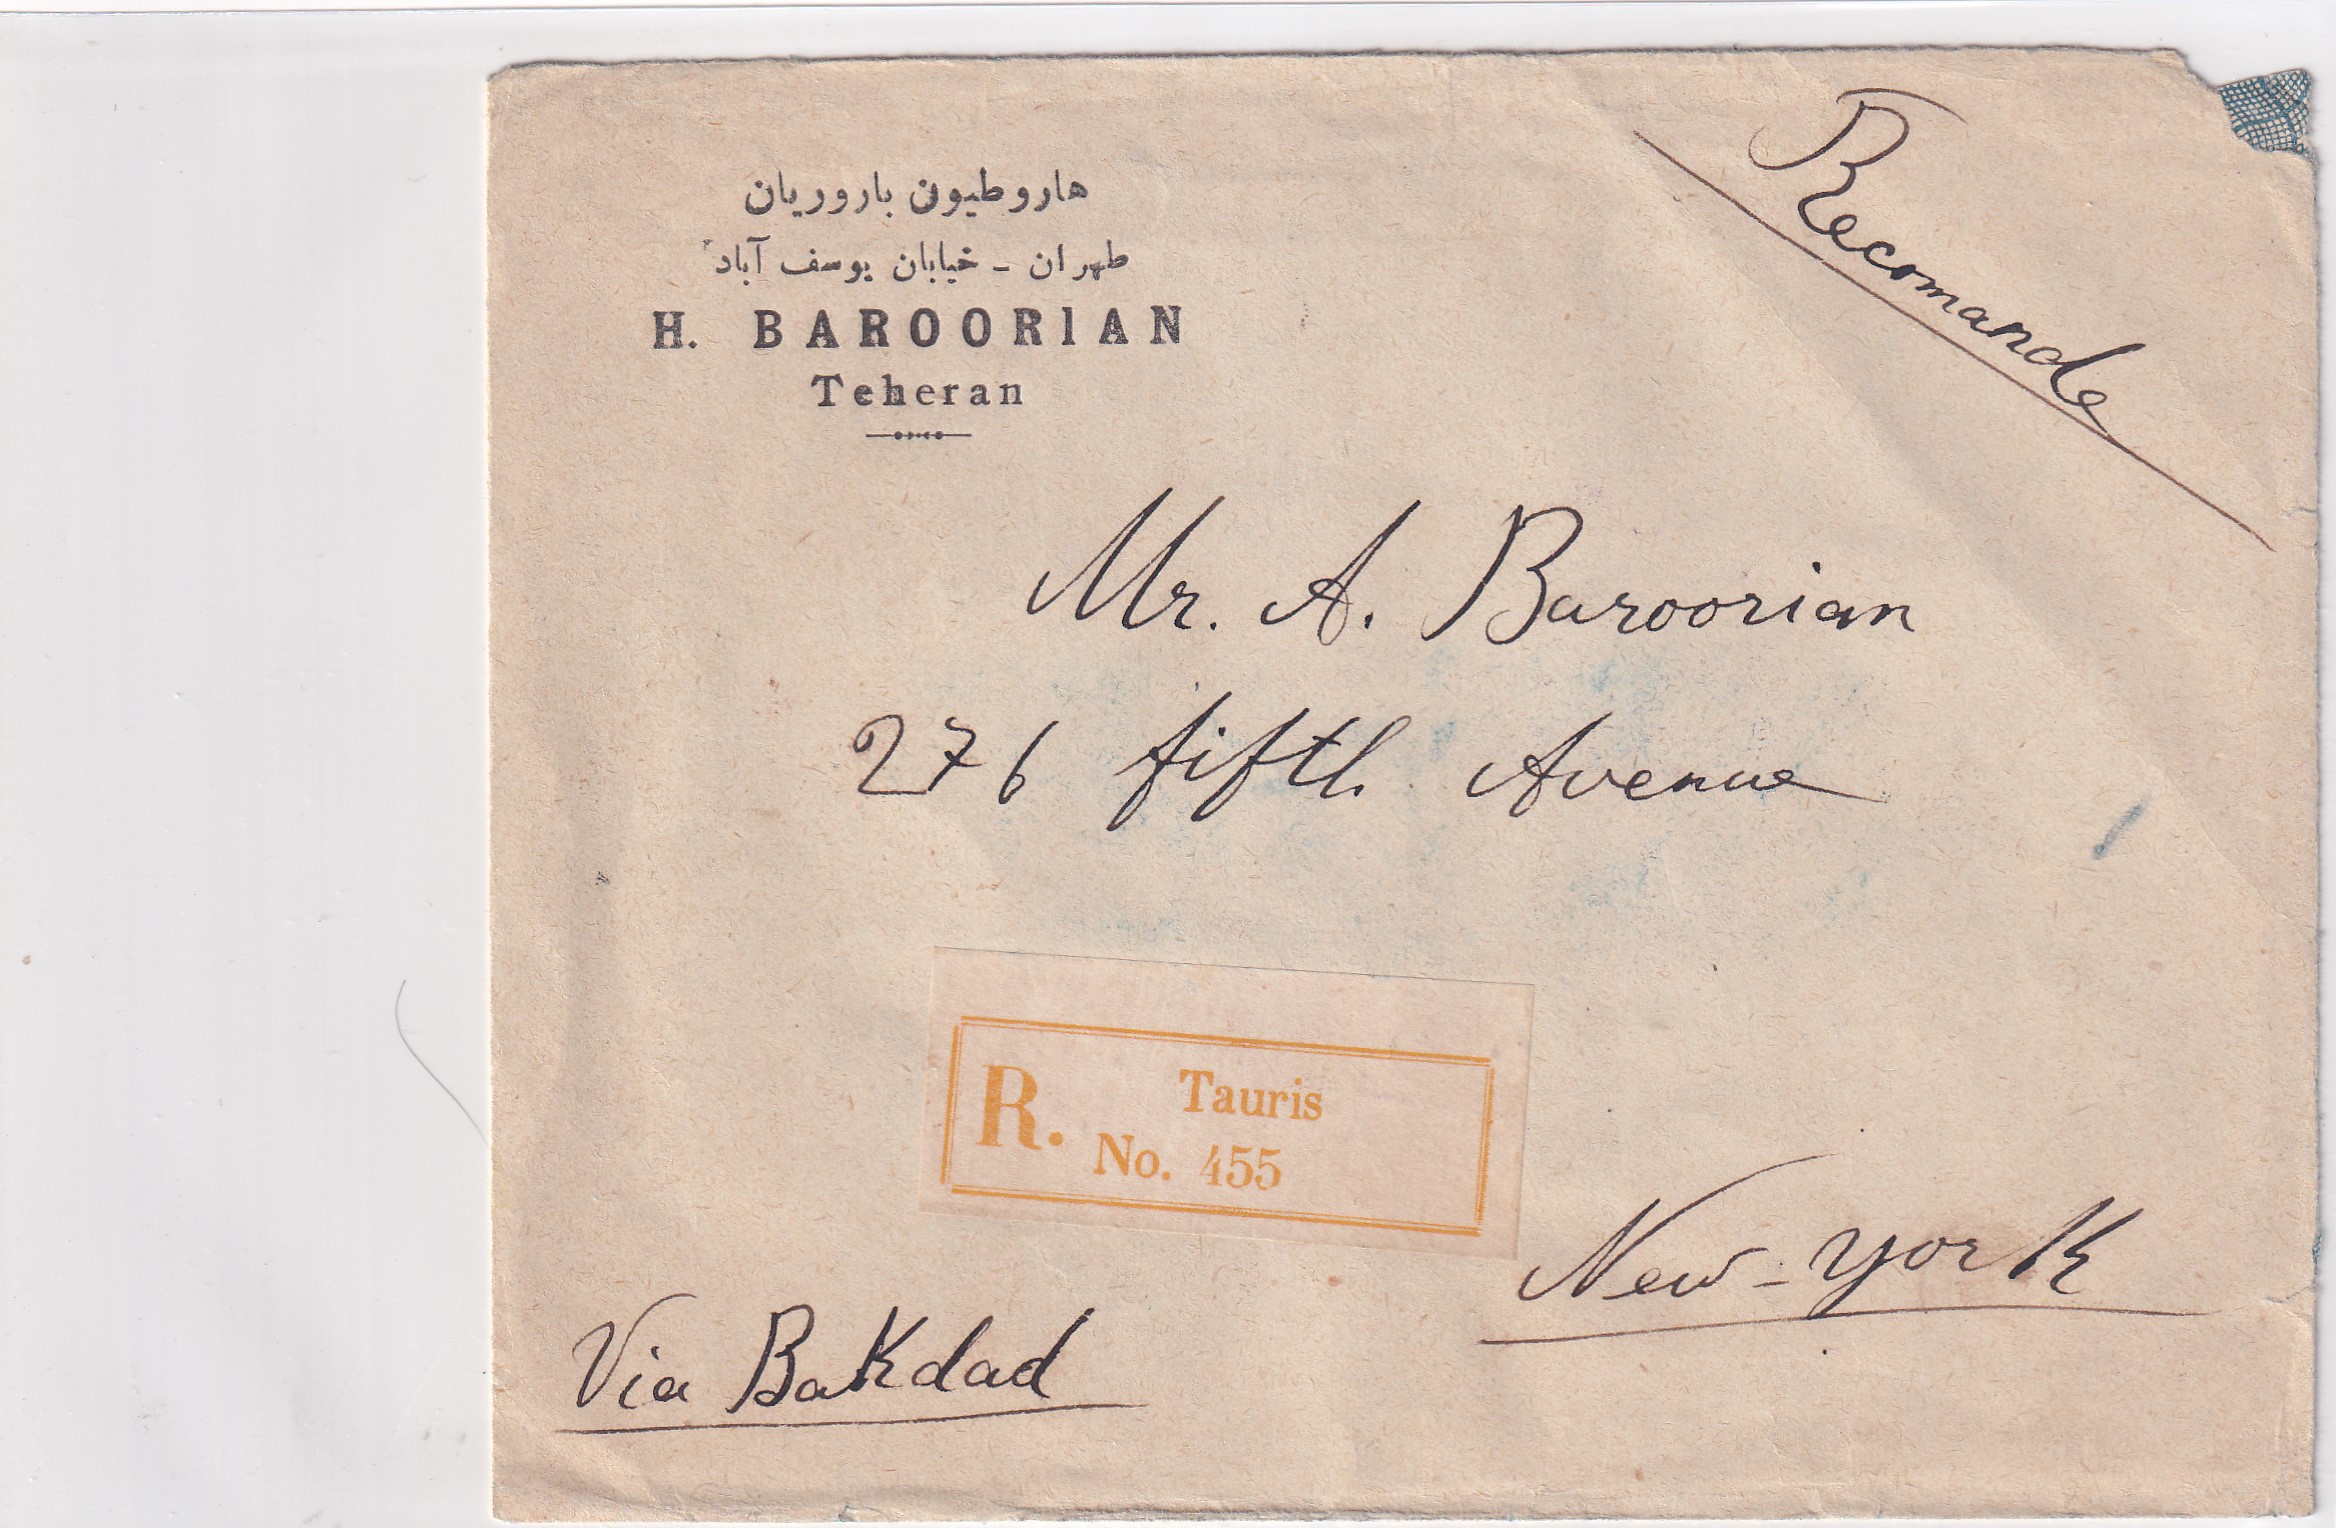 هاروطیون باروریان
طهران - خیابان یوسف آباد
H. BAROORIAN
Teheran
Recomande
Mr. A. Baroorian
276 fifth Avenue
R. Tauris
No. 455
New-York
Via Bakdad